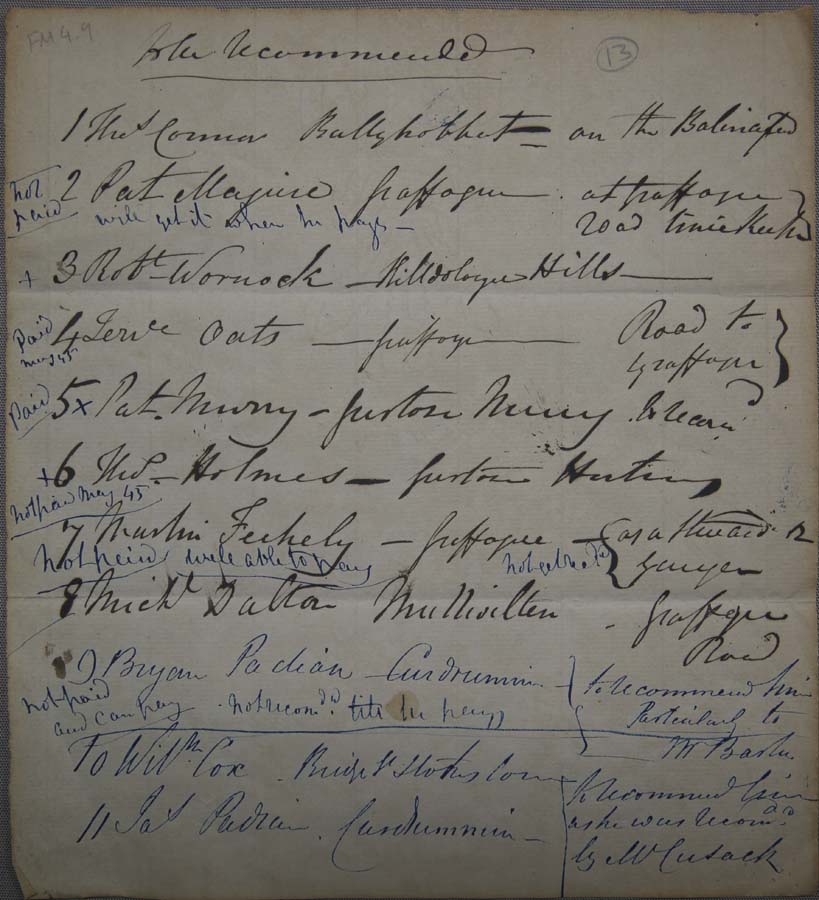 FM 4.9
13
to be Recommended
1 Thos Connor Ballyhobbet = on the Balinafad
not paid
2 Pat Maguire Graffogue at Graffogue
will get it when he pays – Road time Keeper
+ 3 Robt Wornock – Killdologue Hills
Paid May 45
4 Terce Oats – Graffogue Road to
Graffogue
Paid
5 x Pat. Murry – Gurtose Murry
+ 6 Thos – Holmes – Gurtose
Not paid May 45
7 Martin Feehely – Graffogue – as a Steward or
Not paid well able to pay not get recd Ganger
8 Michl Dalton Mullivilten – Graffogue
Road
9 Bryan Padian – Curdrummin – to recommend him
not paid
and can pay – not recomd till he pays Particularly to
Mr
10 Willm Cox Bridge St
to recommend him
11 Jas Padian Curdrummin – as he was recomd
by Mr Cusack